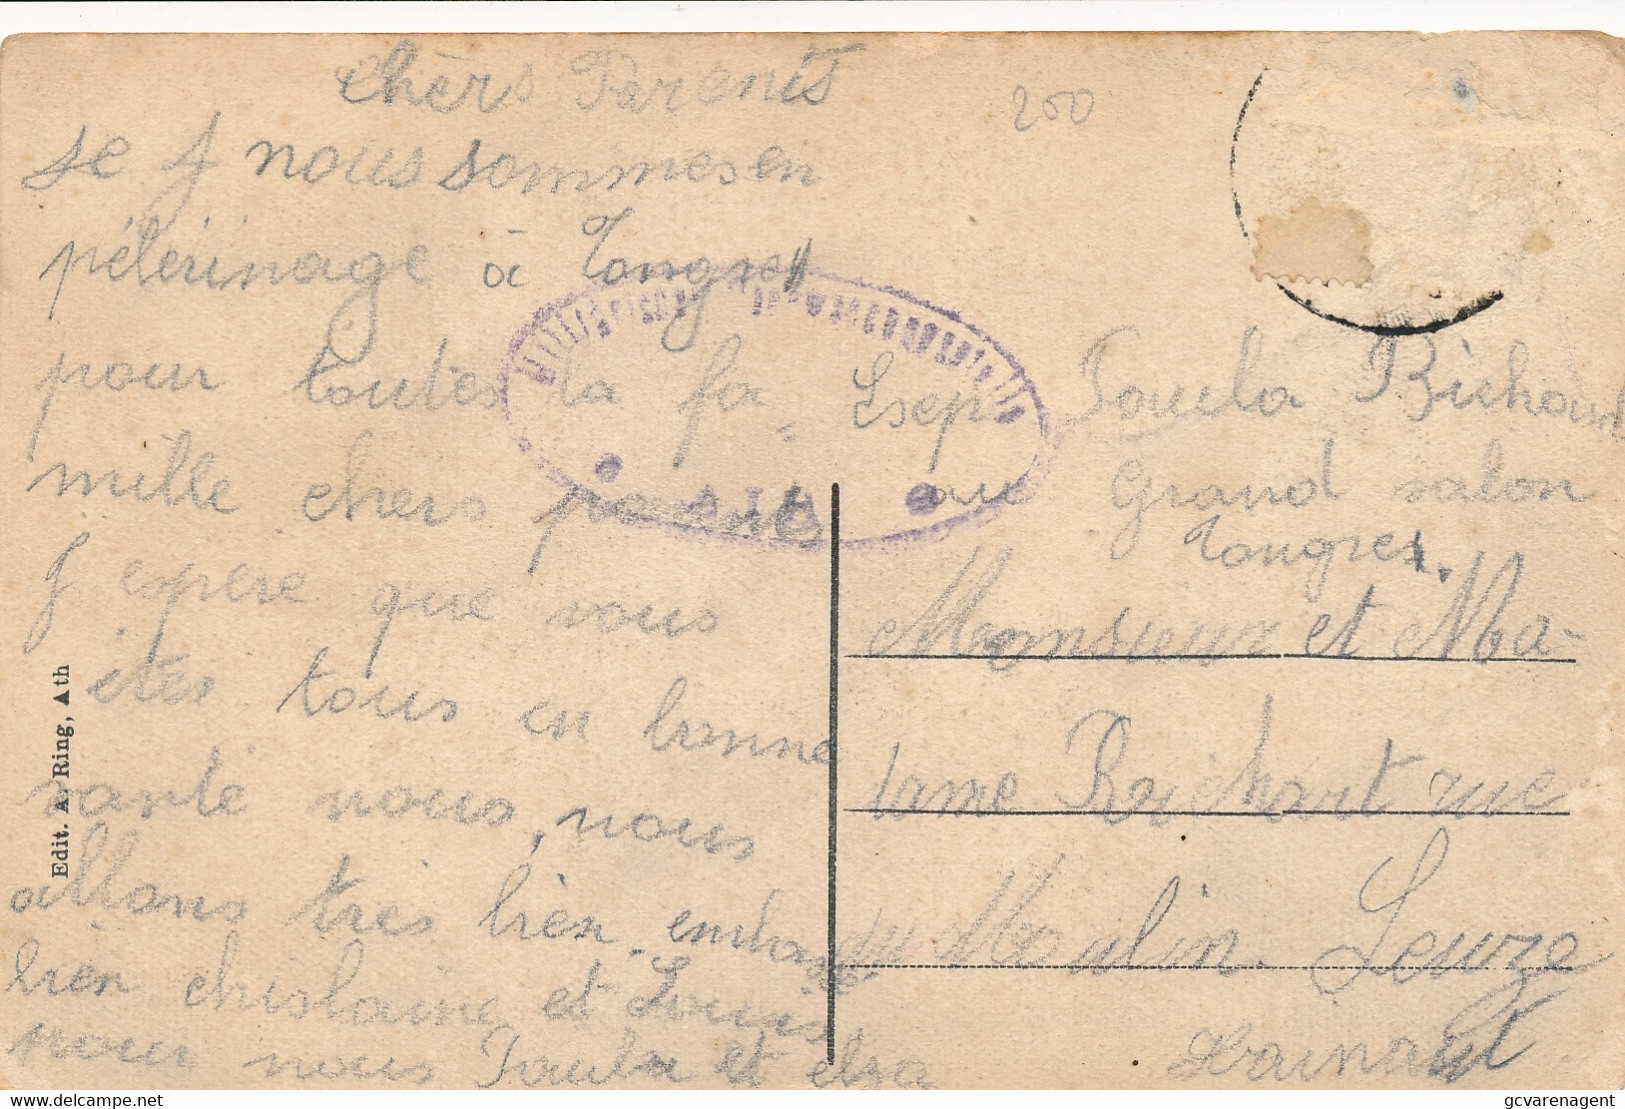 Chèrs Parents
200
se j nous sommes en
pélérinage à Tongres
pour toutes la fa
mille chers parents
J espère que vous
êtes tous en bonne
santé nous, nous
allons très bien. embrasse
bien Ghislaine et Louis
pour nous Paula et elza
Edit. A. Ring, Ath
ATH
Paula Richart
au Grand salon
Tongres.
Monsieur et Ma-
dame Richart rue
du Moulin. Leuze
Hainaut
gcvarenagent
delcampe.net